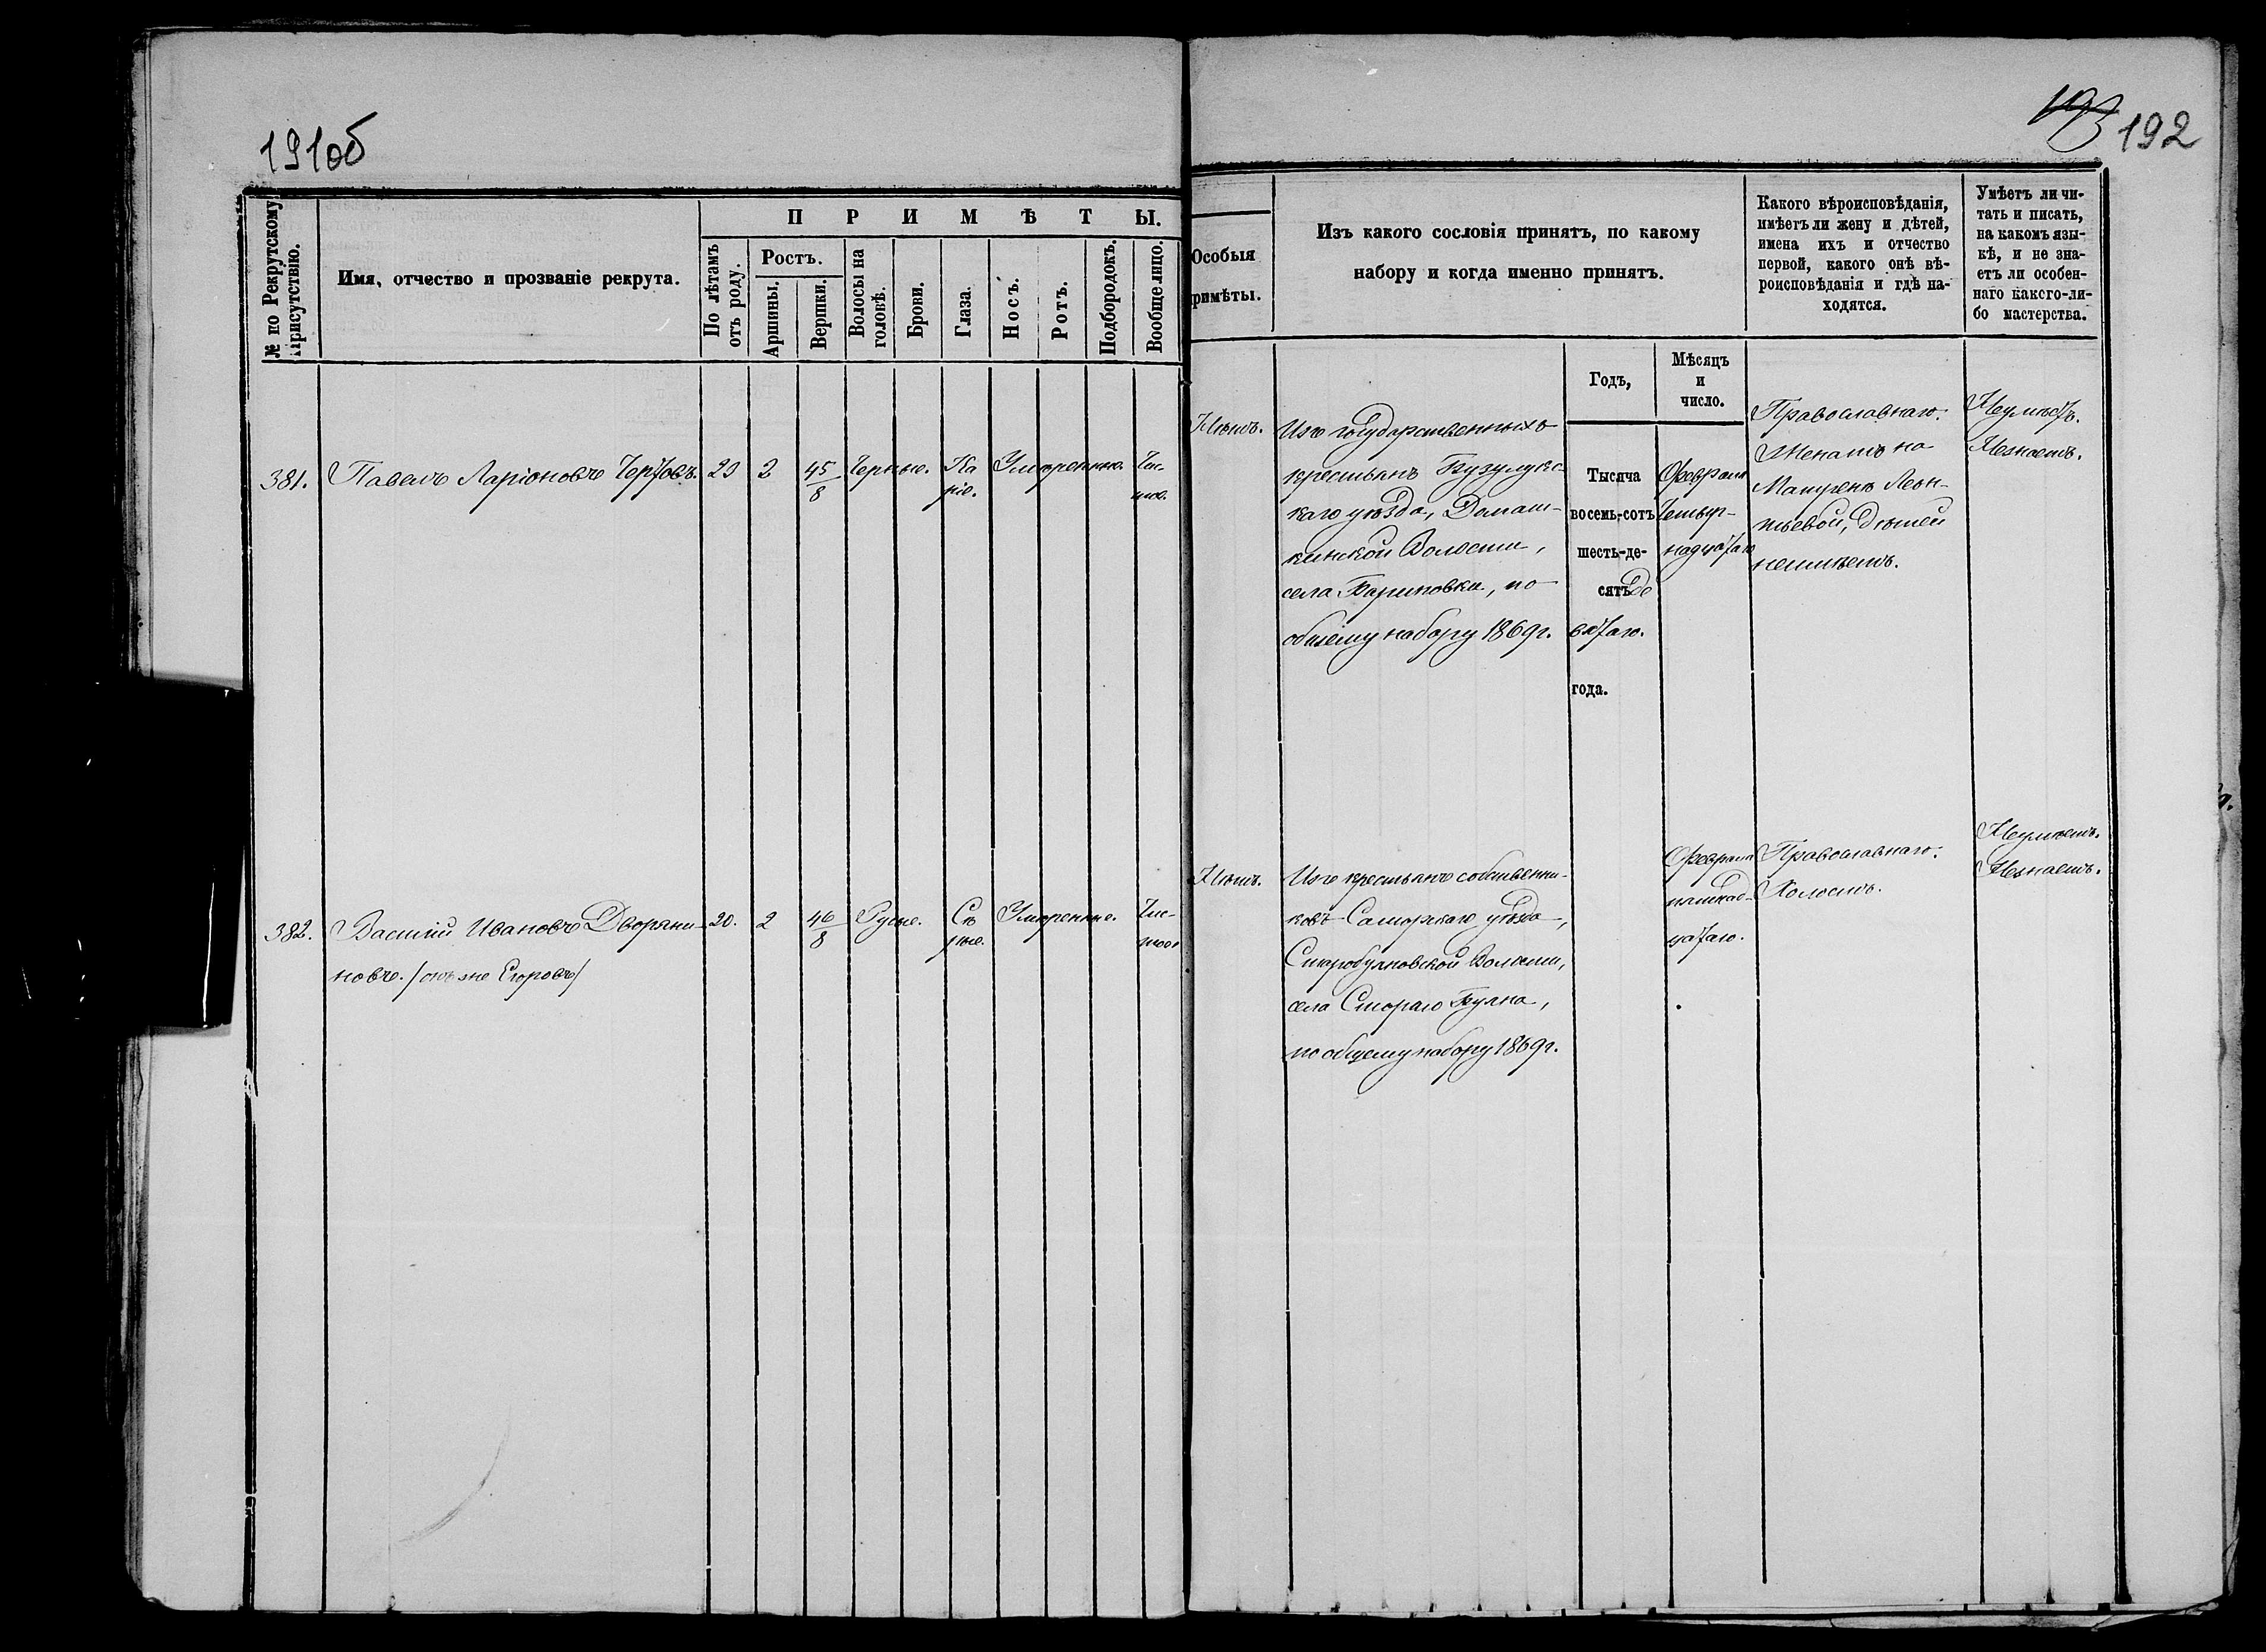 191об
193 192
№ по Рекрутскому Присутствію.
Имя, отчество и прозваніе рекрута.
ПРИМѢТЫ.
По лѣтамъ отъ роду.
Ростъ.
Аршины.
Вершки.
Волосы на головѣ.
Брови.
Глаза.
Носъ.
Ротъ.
Подбородокъ.
Вообще лицо.
Особыя
римѣты.
Изъ какого сословія принятъ, по какому
набору и когда именно принятъ.
Какого вѣроисповѣданія,
имѣетъ ли жену и дѣтей,
имена ихъ и отчество
первой, какого онѣ вѣ-
роисповѣданія и гдѣ на-
ходятся.
Умѣетъ ли чи-
тать и писать,
на какомъ язы-
кѣ, и не зна-
етъ ли особен-
наго какого-ли-
бо мастерства.
Годъ,
Мѣсяцъ
и
число.
381. Павелъ Ларіоновъ Чертовъ. 2 4 5/8 Черные. Ка
ріе.
Умѣренные. Чис-
тое.
Нѣтъ.
Изъ государственныхъ
крестьянъ Бузулукс-
каго уѣзда, Домаш-
кинской Волости,
села Бариновки, по
общему набору 1869 г.
Тысяча
восемь-сотъ
шесть-де-
сятъ де
вятаго.
года.
Февраля
Четыр-
надцатаго
Православнаго.
Женатъ на
Матренѣ Леон-
тьевой, дѣтей
неимѣетъ.
Неумѣетъ.
Незнаетъ.
382. Василий Ивановъ Дворяни- 20. 2 4 6/8 Русые. Сѣ
рые.
Умѣренные. Чис-
тое.
новъ. /онъ же Егоровъ/
Нѣтъ.
Изъ крестьянъ собственни-
ковъ Самарскаго уѣзда,
Старобуяновской Волости,
села Стараго Буяна,
по общему набору 1869 г.
Февраля
пятнад-
цатаго.
Православнаго.
Холостъ.
Неумѣетъ.
Незнаетъ.